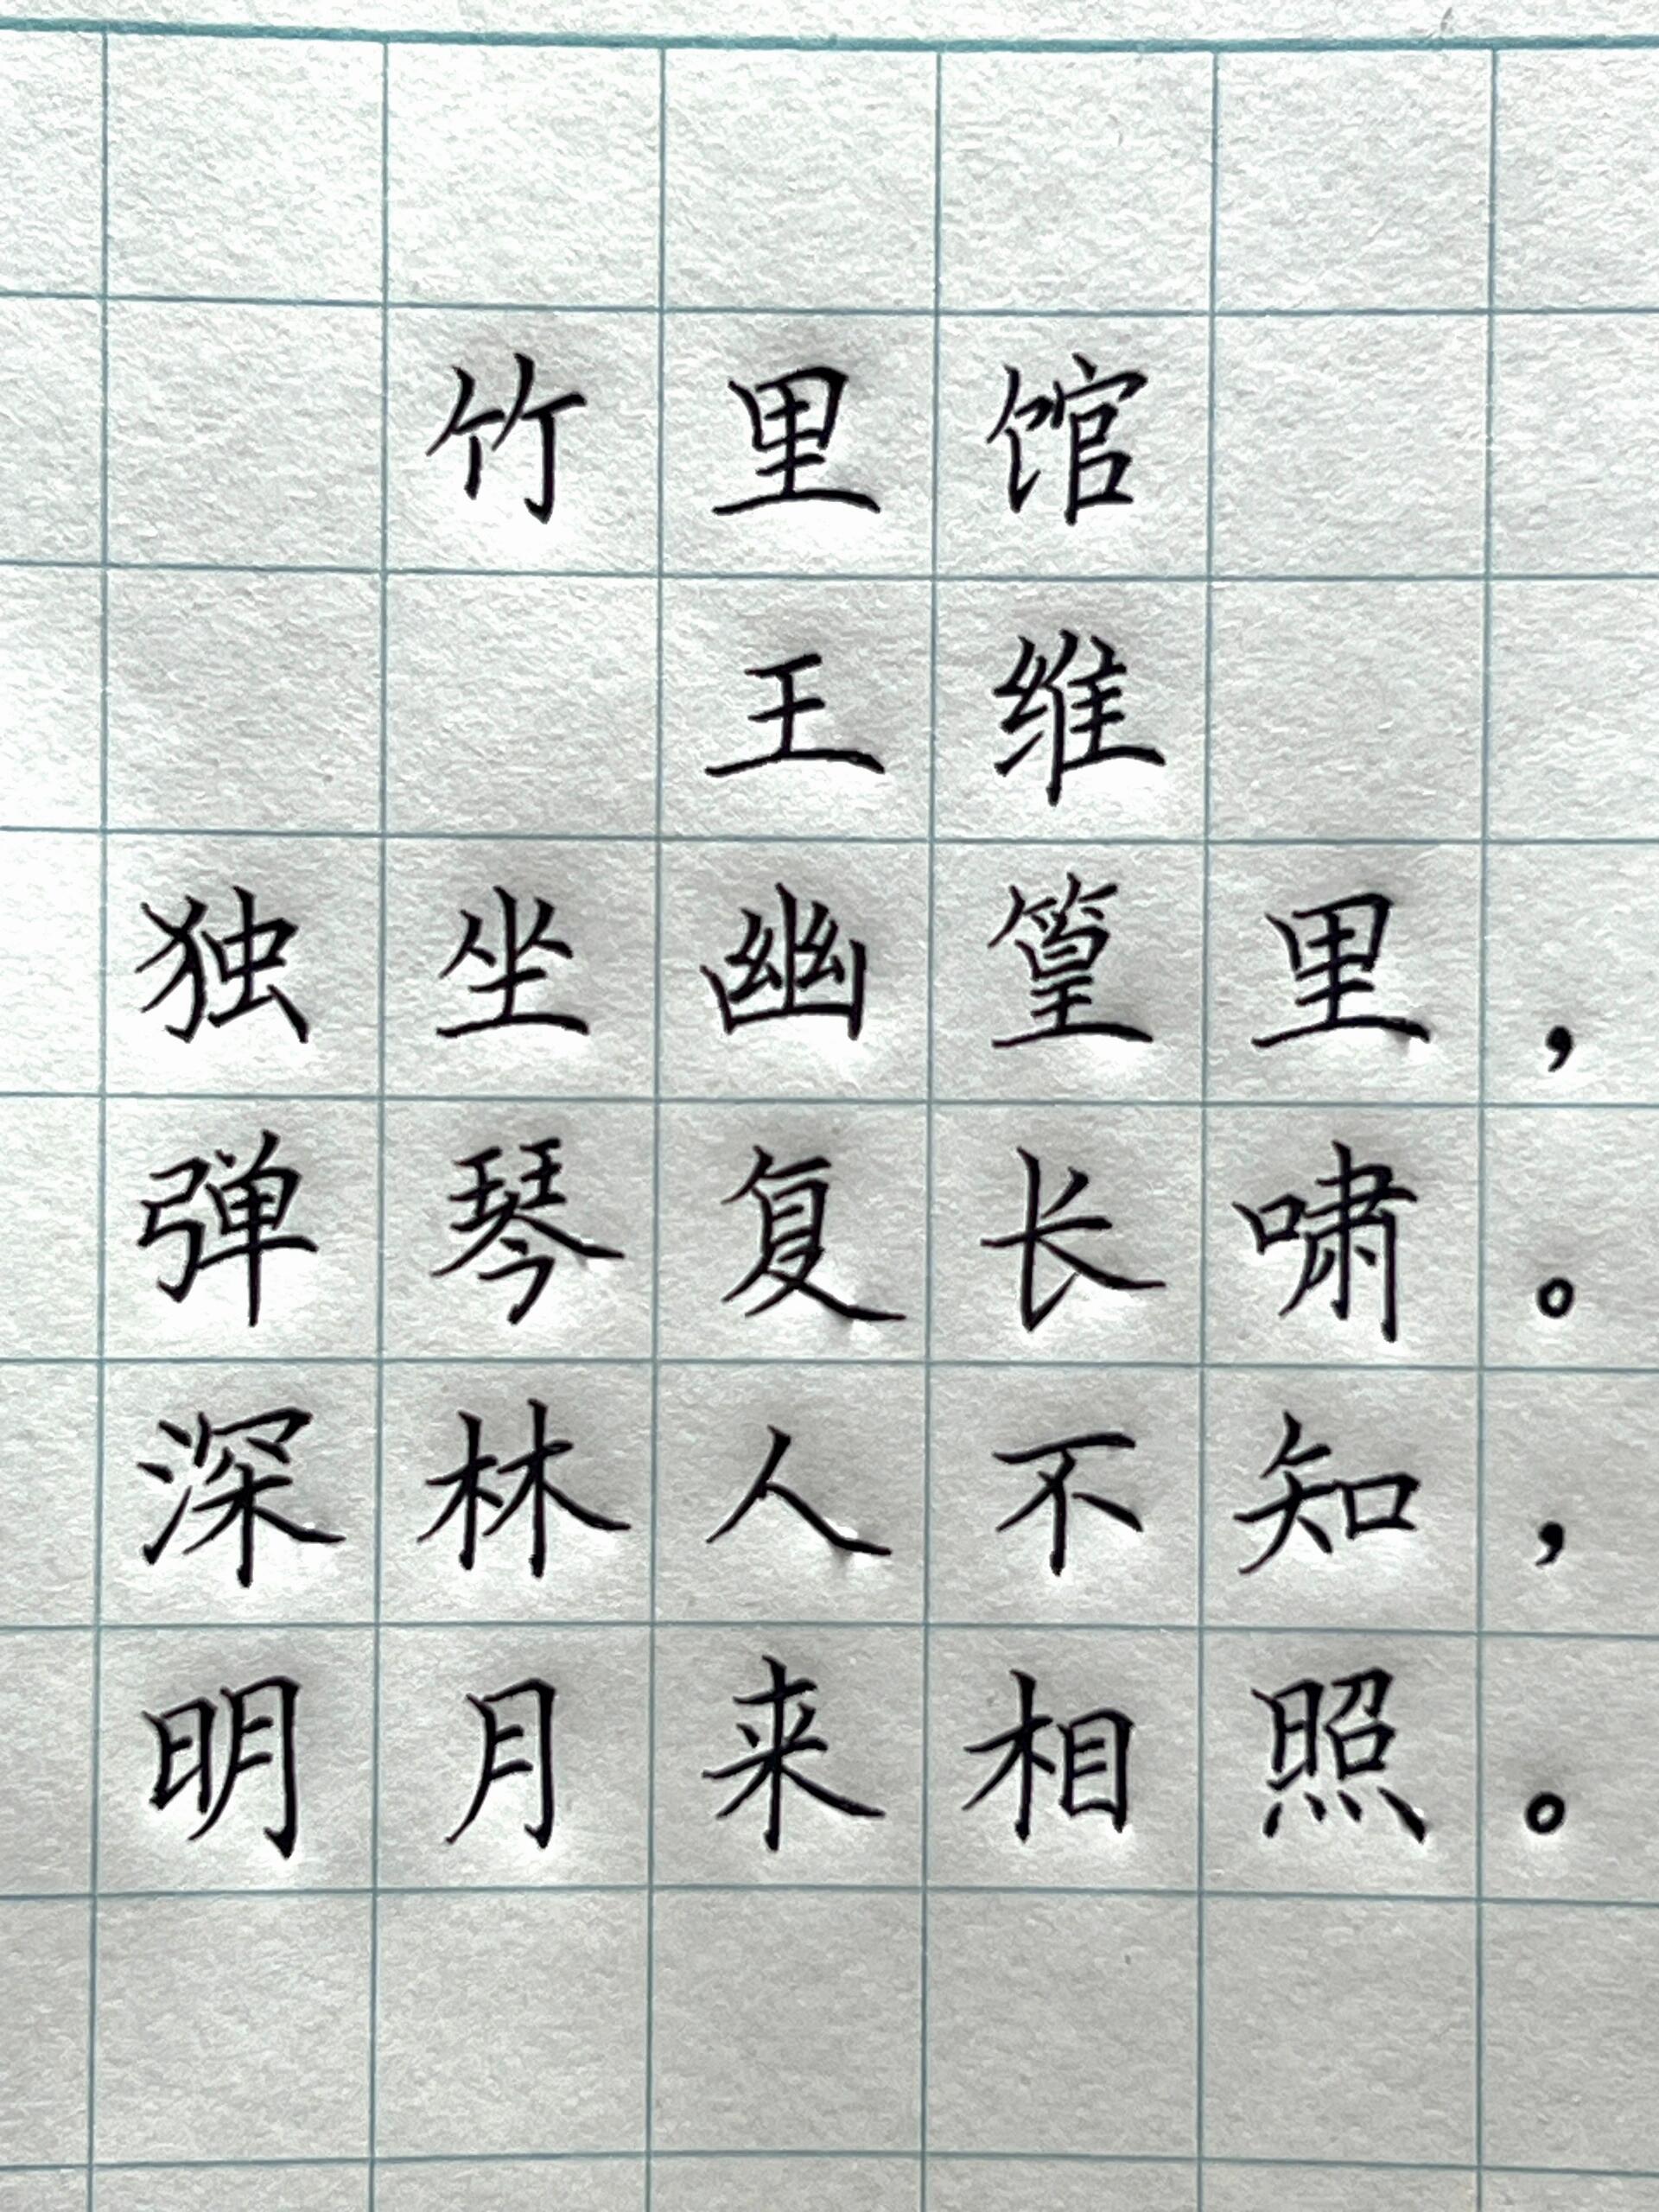 竹里馆
王维
独坐幽篁里，
弹琴复长啸。
深林人不知，
明月来相照。